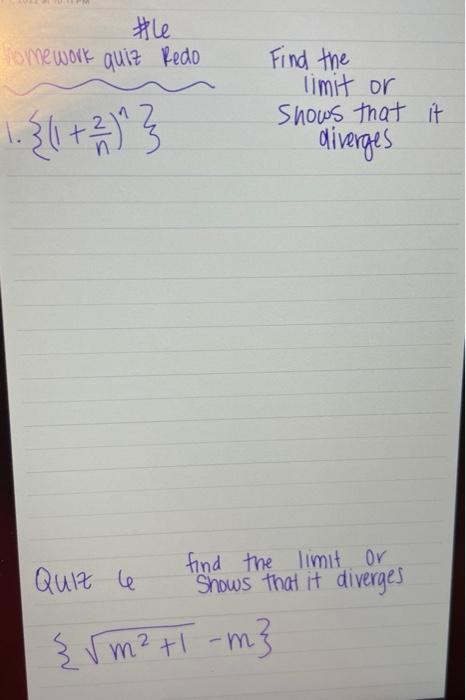 #6
Homework quiz Redo
Find the
limit or
Shows that it
diverges
1. {(1 + 2/n)^n}
Quiz 6
find the limit or
Shows that it diverges
{√m² +1 - m}